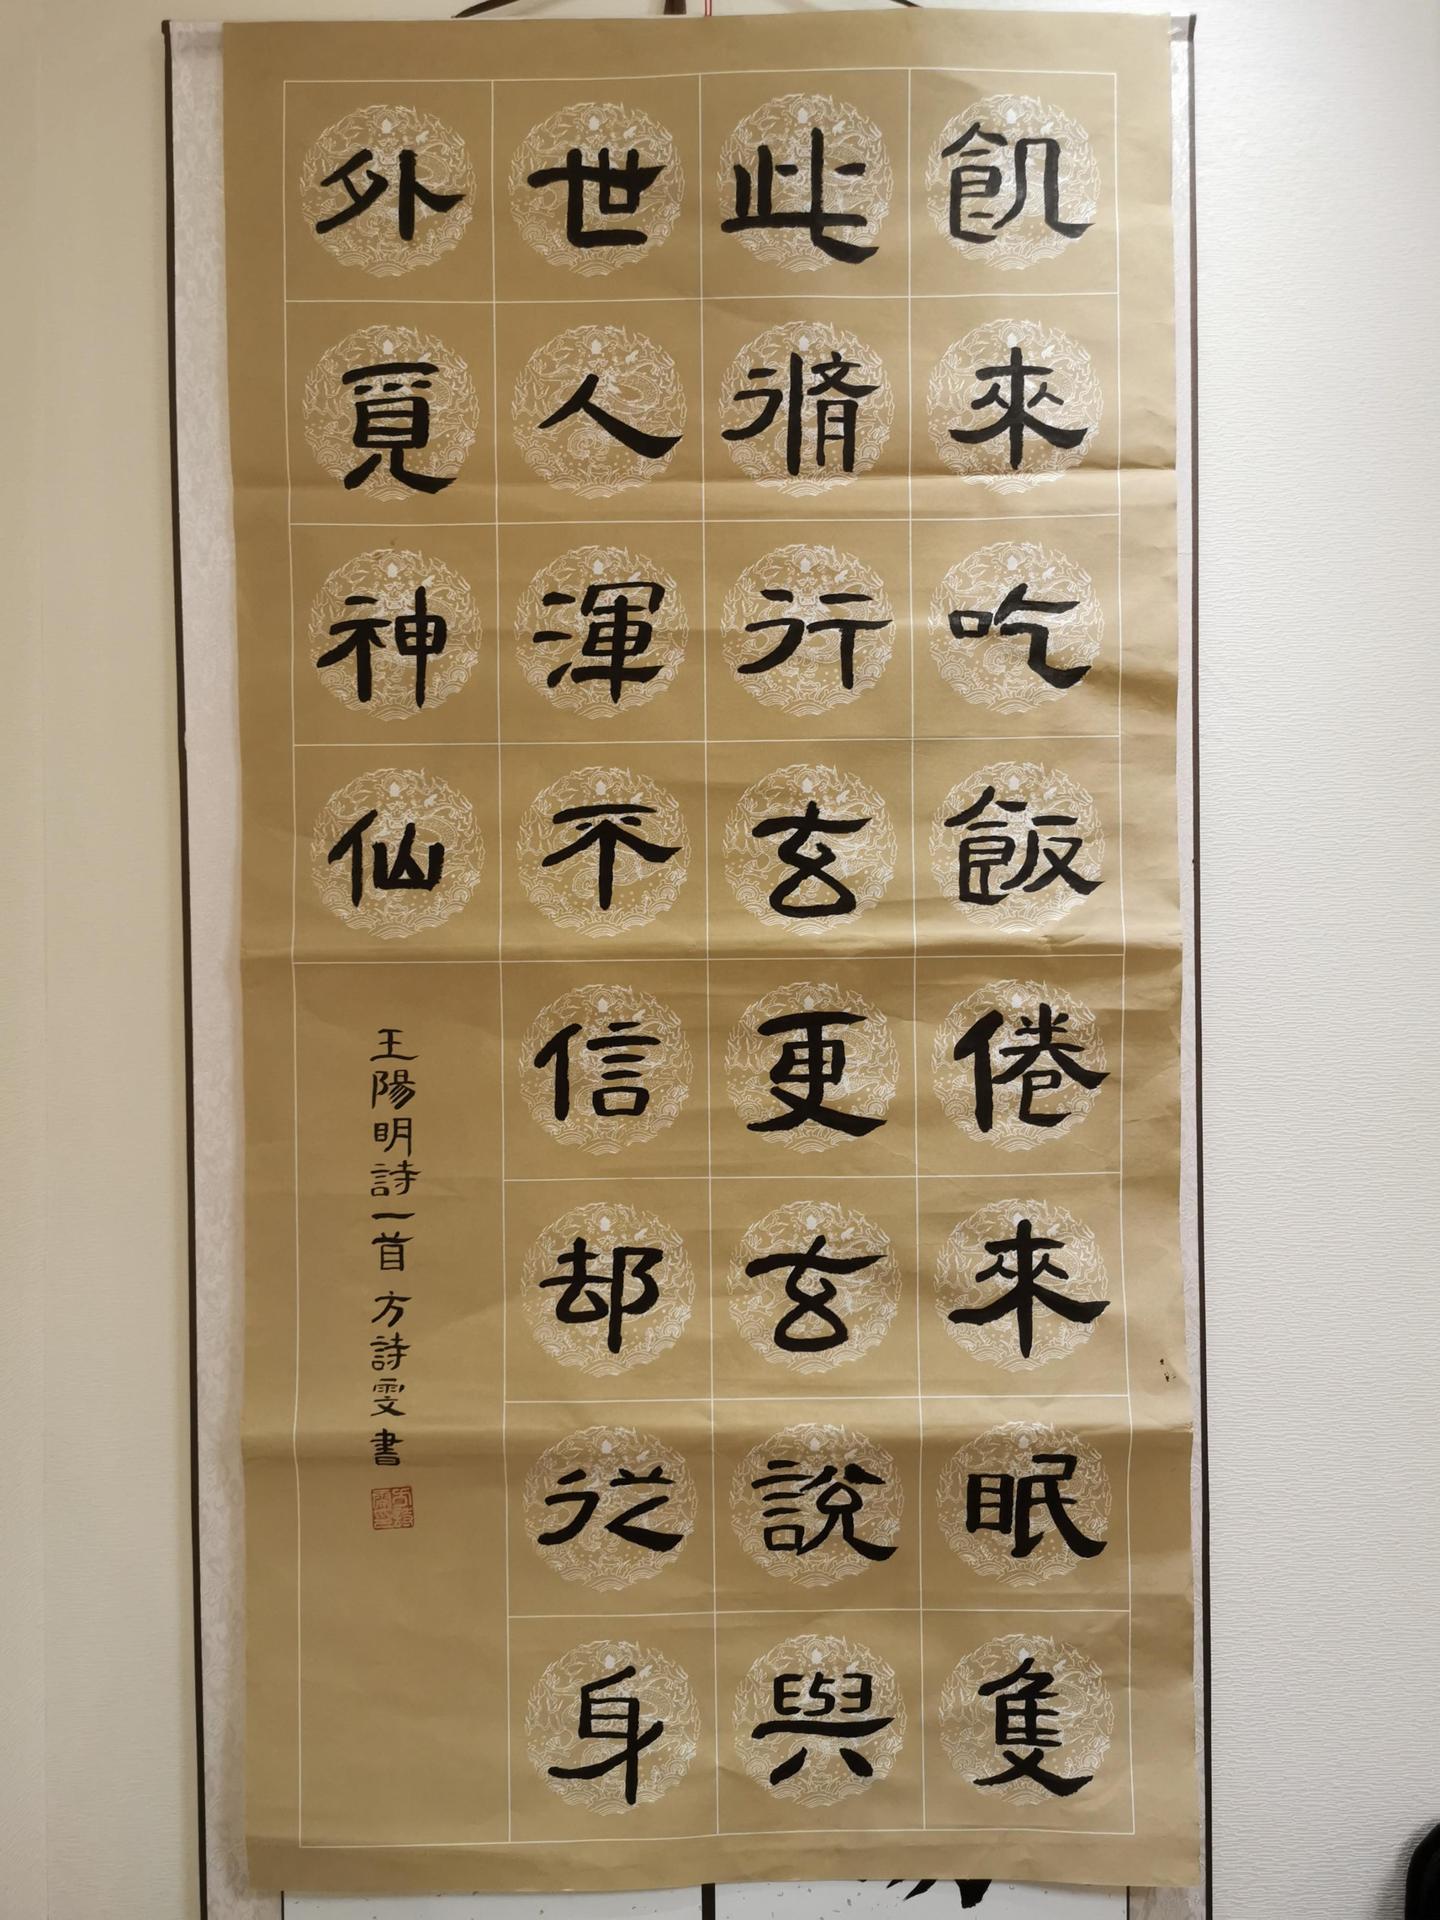 飢來吃飯倦來眠隻
此脩行玄更玄說與
世人渾不信却從身
外覓神仙
王陽明詩一首 方詩雯書